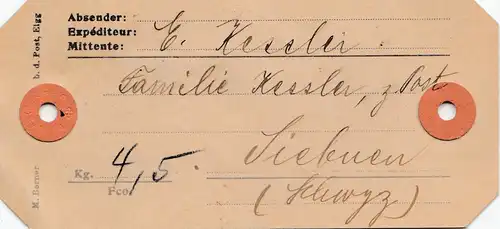 Absender:
Expéditeur: E. Kessler
Mittente:
Familie Kessler, z Post
Siebnen
(Schwyz)
Kg. 4,5
Fco.
M. Berner b. d. Post, Elgg